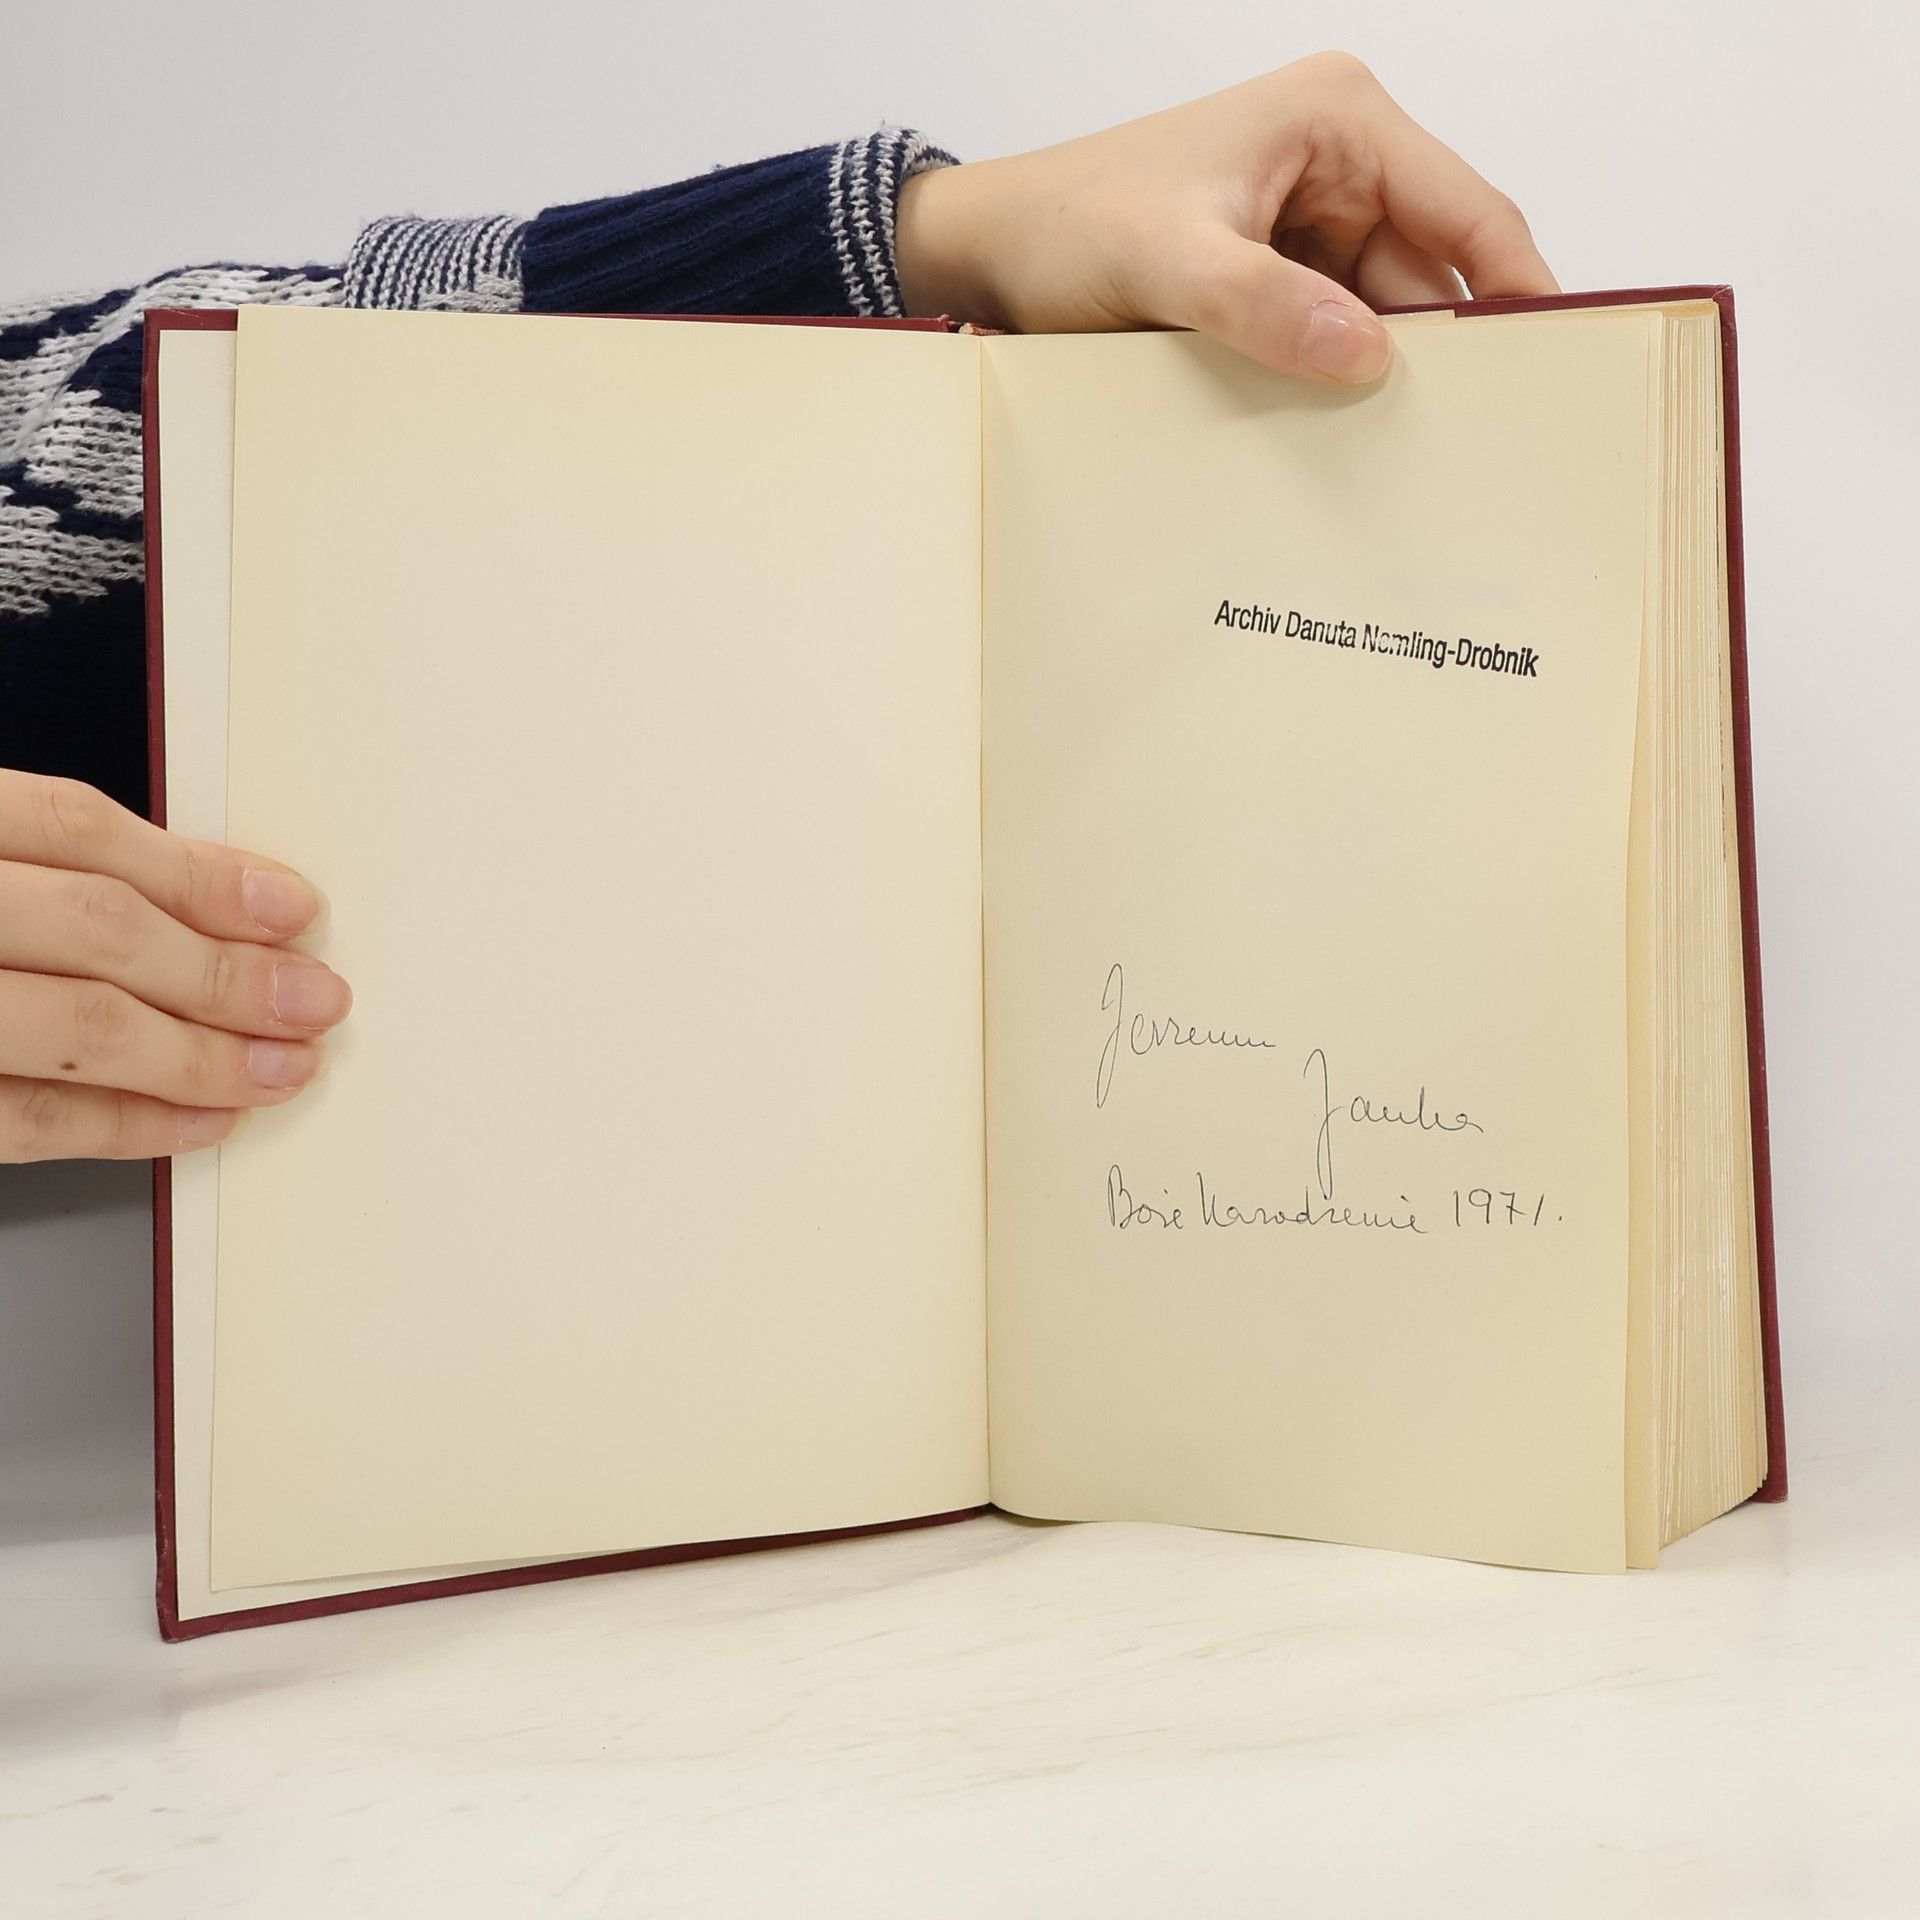 Archiv Danuta Nemling-Drobnik
Jerzemu
Janka
Boże Narodzenie 1971.